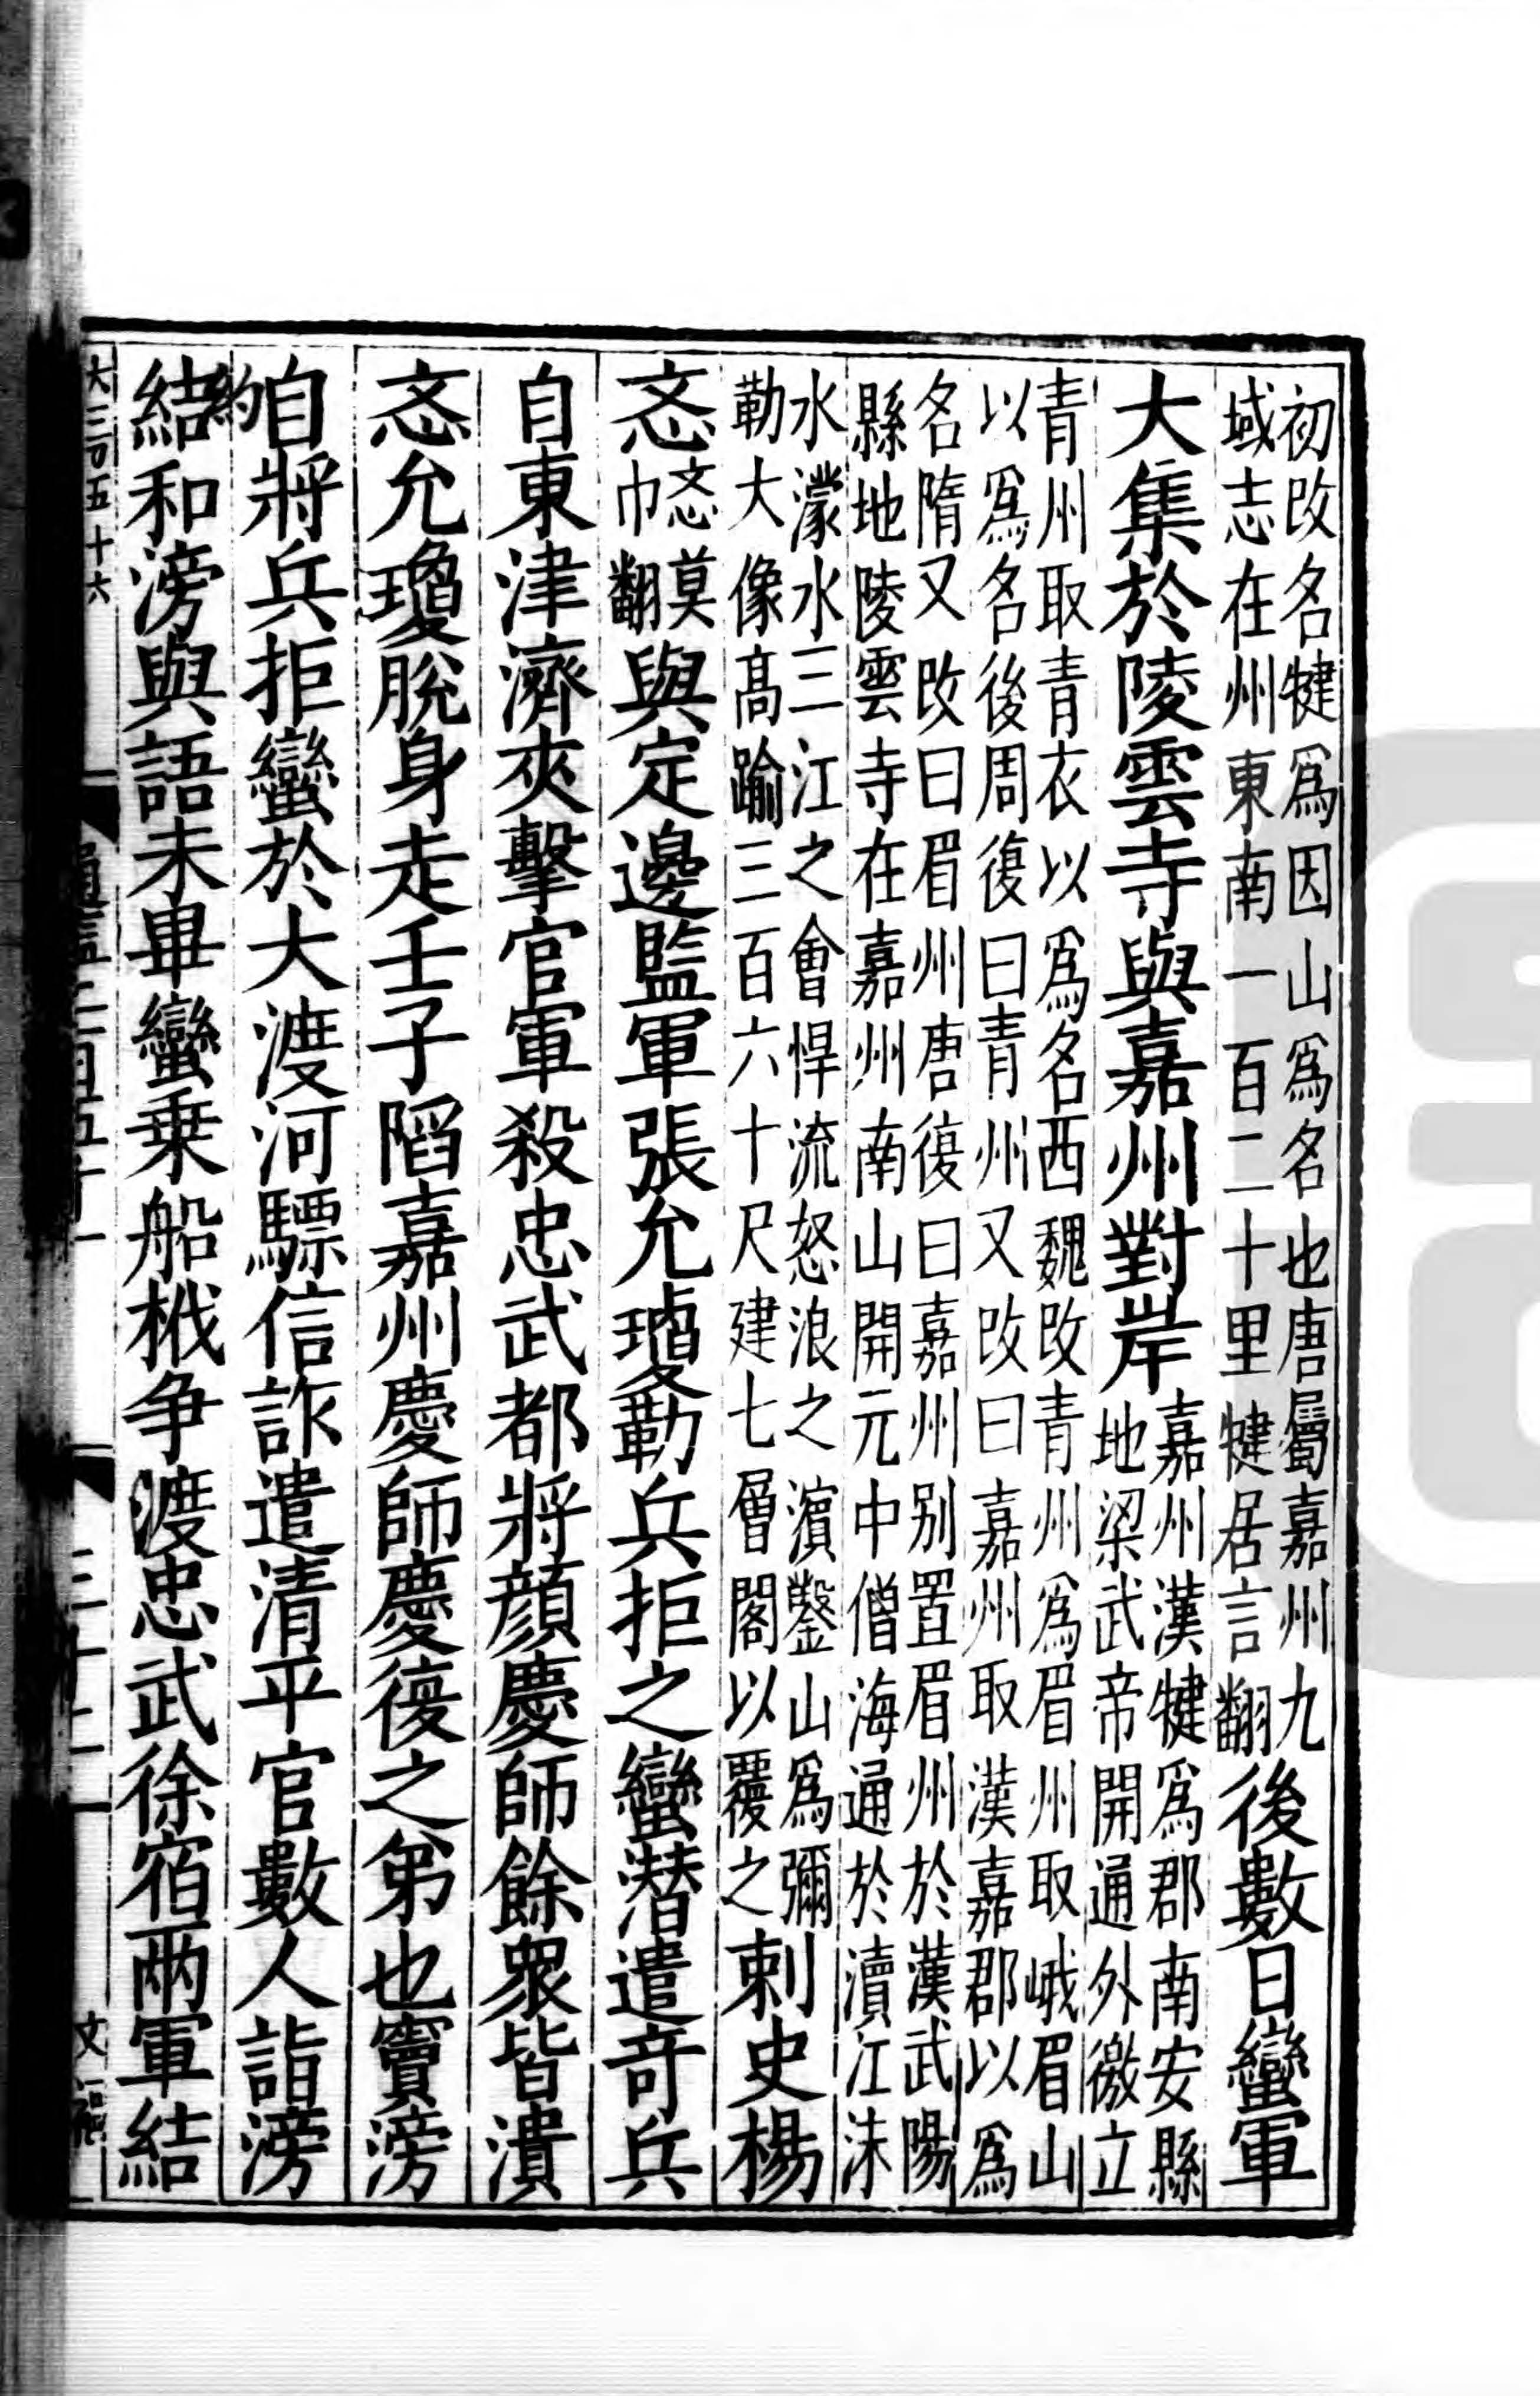 初改名犍爲因山爲名也唐屬嘉州九
域志在州東南一百二十里犍居言翻
後數日蠻軍
大集於陵雲寺與嘉州對岸
嘉州漢犍爲郡南安縣
地梁武帝開通外徼立
青州取青衣以爲名西魏改青州爲眉州取峨眉山
以爲名後周復曰青州又改曰嘉州取漢嘉郡以爲
名隋又改曰眉州唐復曰嘉州别置眉州於漢武陽
縣地陵雲寺在嘉州南山開元中僧海通於瀆江沫
水濛水三江之會悍流怒浪之濵鑿山爲彌
勒大像髙踰三百六十尺建七層閣以覆之
刺史楊
忞
忞莫
巾翻
與定邊監軍張允瓊勒兵拒之蠻潜遣奇兵
自東津濟夾擊官軍殺忠武都將顔慶師餘衆皆潰
忞允瓊脫身走壬子陷嘉州慶師慶復之弟也竇滂
自將兵拒蠻於大渡河驃信詐遣清平官數人詣滂
約
結和滂與語未畢蠻乗船栰争渡忠武徐宿兩軍結
大三百五十六
通鑑二百五十一
三十二
文